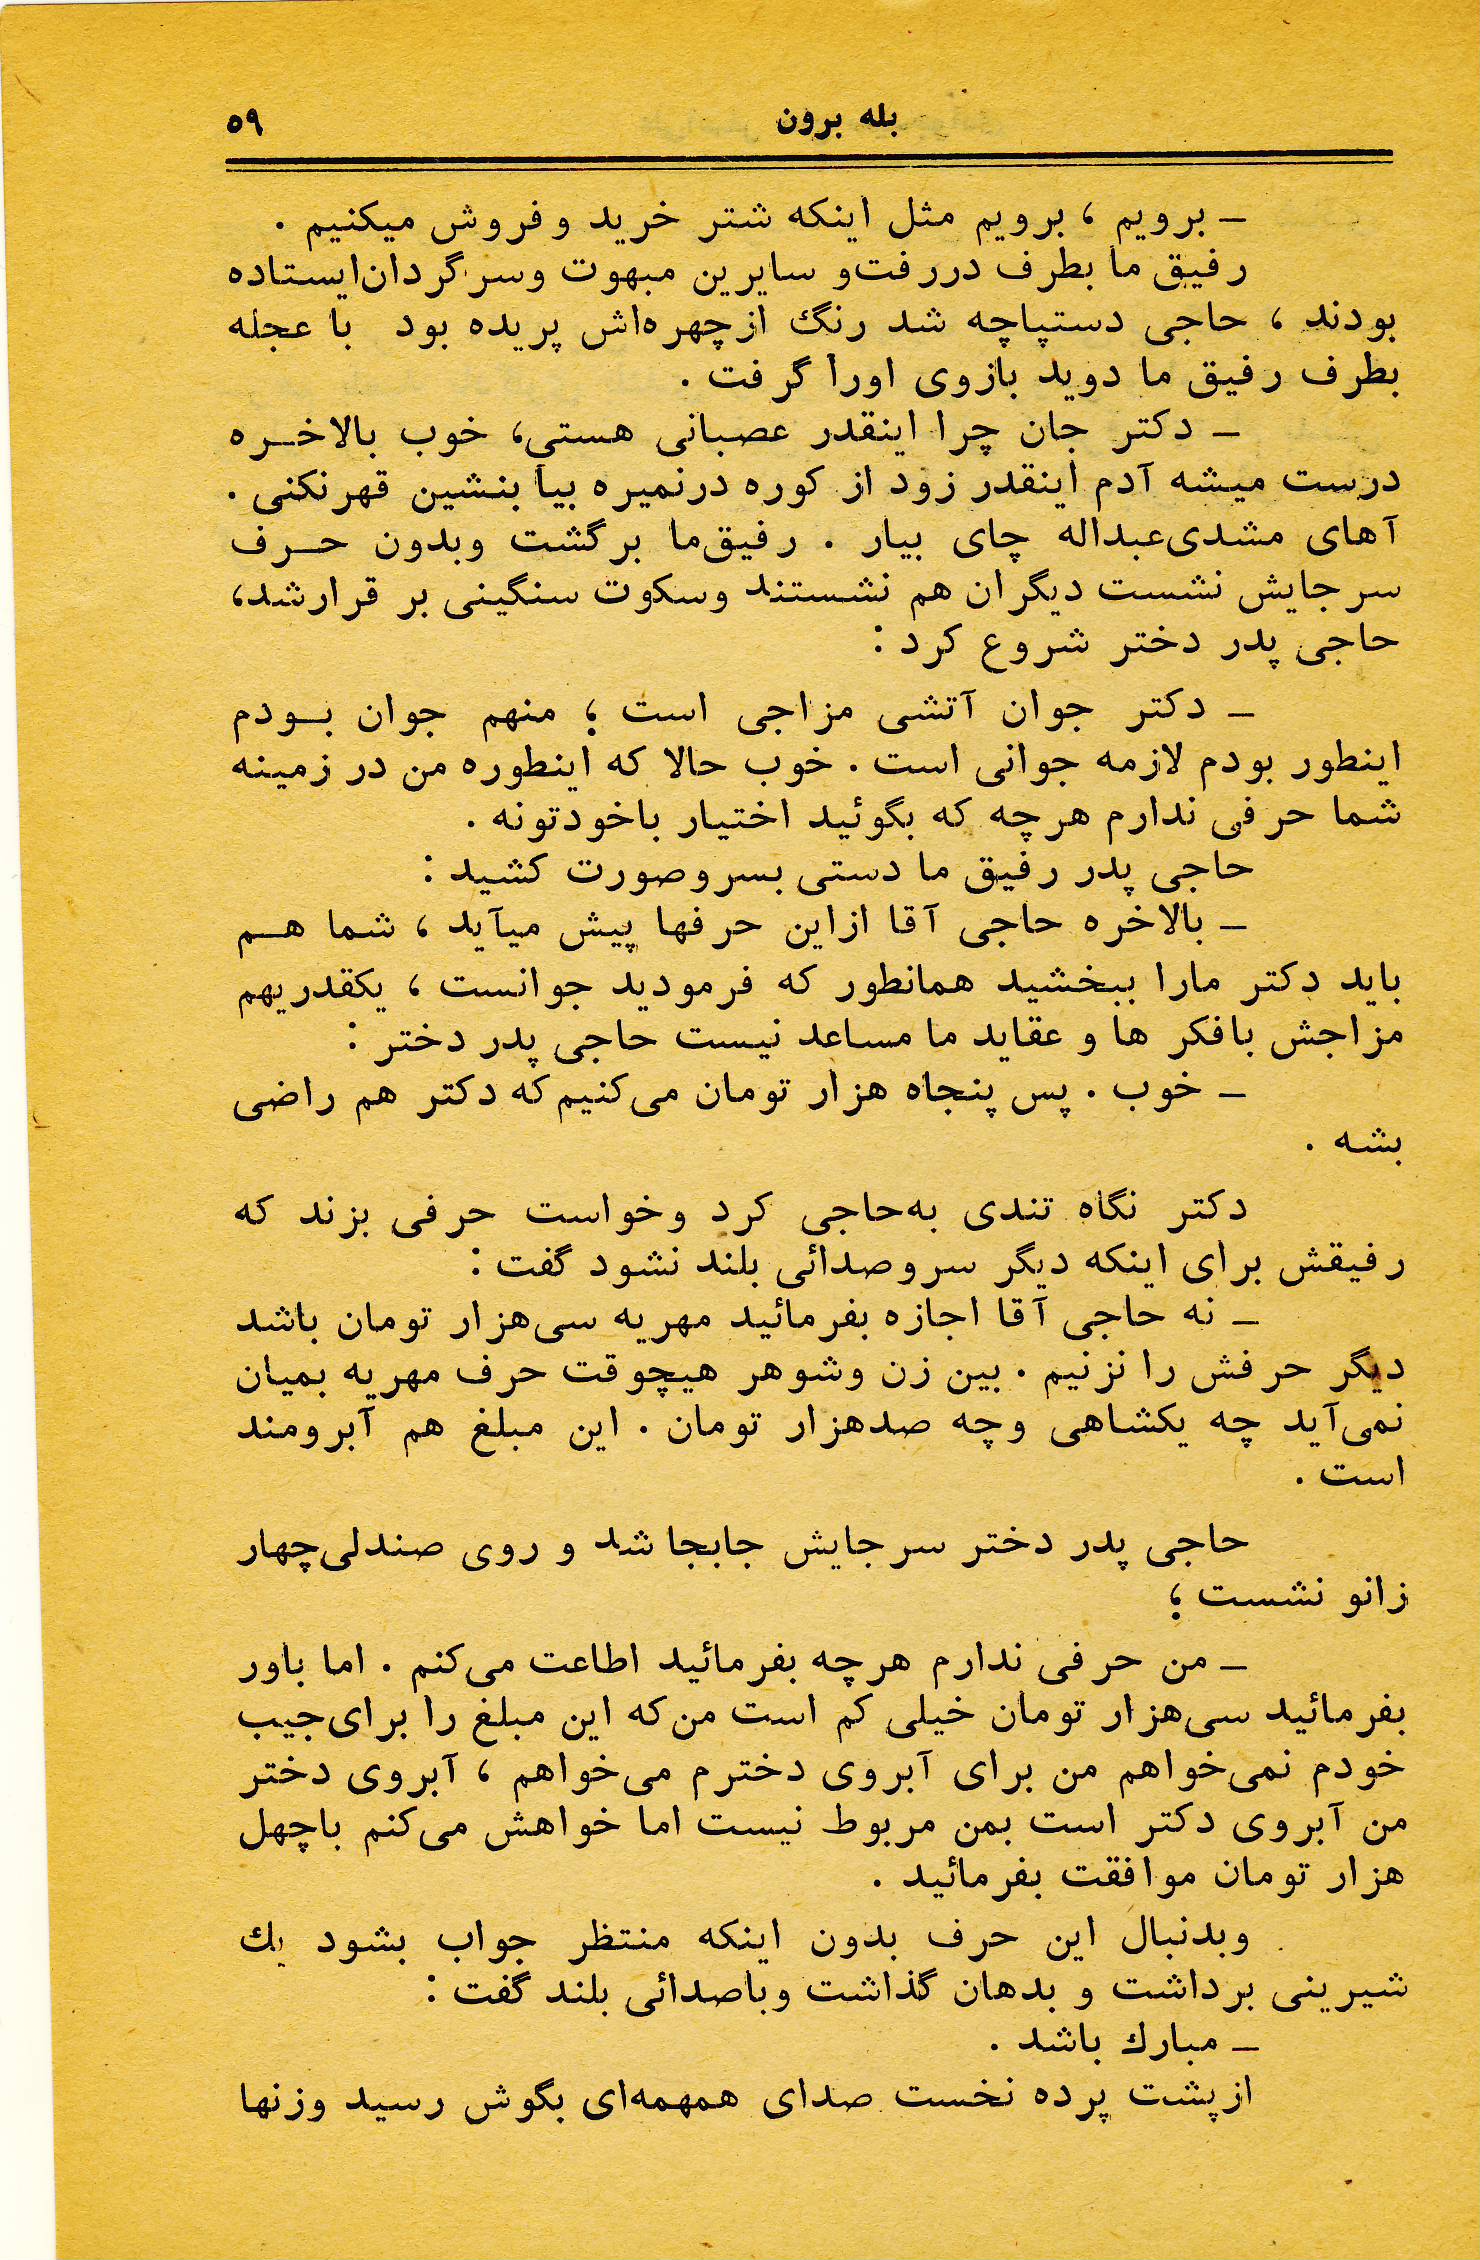 بله برون
۵۹
ـ برویم ، برویم مثل اینکه شتر خرید و فروش میکنیم .
رفیق ما بطرف در رفت و سایرین مبهوت و سرگردان ایستاده
بودند ، حاجی دستپاچه شد رنگ از چهره‌اش پریده بود با عجله
بطرف رفیق ما دوید بازوی اورا گرفت .
ـ دکتر جان چرا اینقدر عصبانی هستی، خوب بالاخـره
درست میشه آدم اینقدر زود از کوره درنمیره بیا بنشین قهر نکنی .
آهای مشدی‌عبداله چای بیار . رفیق‌ما برگشت وبدون حـرف
سر جایش نشست دیگران هم نشستند وسکوت سنگینی بر قرارشد،
حاجی پدر دختر شروع کرد :
ـ دکتر جوان آتشی مزاجی است ؛ منهم جوان بـودم
اینطور بودم لازمه جوانی است . خوب حالا که اینطوره من در زمینه
شما حرفی ندارم هرچه که بگوئید اختیار باخودتونه .
حاجی پدر رفیق ما دستی بسر وصورت کشید :
ـ بالاخره حاجی آقا ازاین حرفها پیش میآید ، شما هـم
باید دکتر مارا ببخشید همانطور که فرمودید جوانست ، یکقدریهم
مزاجش بافکر ها و عقاید ما مساعد نیست حاجی پدر دختر :
ـ خوب . پس پنجاه هزار تومان می‌کنیم که دکتر هم راضی
بشه .
دکتر نگاه تندی به‌حاجی کرد وخواست حرفی بزند که
رفیقش برای اینکه دیگر سروصدائی بلند نشود گفت :
ـ نه حاجی آقا اجازه بفرمائید مهریه سی‌هزار تومان باشد
دیگر حرفش را نزنیم . بین زن وشوهر هیچوقت حرف مهریه بمیان
نمی‌آید چه یکشاهی وچه صدهزار تومان . این مبلغ هم آبرومند
است .
حاجی پدر دختر سرجایش جابجا شد و روی صندلی‌چهار
زانو نشست ؛
ـ من حرفی ندارم هرچه بفرمائید اطاعت می‌کنم . اما باور
بفرمائید سی‌هزار تومان خیلی کم است من‌که این مبلغ را برای‌جیب
خودم نمی‌خواهم من برای آبروی دخترم می‌خواهم ، آبروی دختر
من آبروی دکتر است بمن مربوط نیست اما خواهش می‌کنم باچهل
هزار تومان موافقت بفرمائید .
وبدنبال این حرف بدون اینکه منتظر جواب بشود یك
شیرینی برداشت و بدهان گذاشت وباصدائی بلند گفت :
ـ مبارك باشد .
ازپشت پرده نخست صدای همهمه‌ای بگوش رسید وزنها